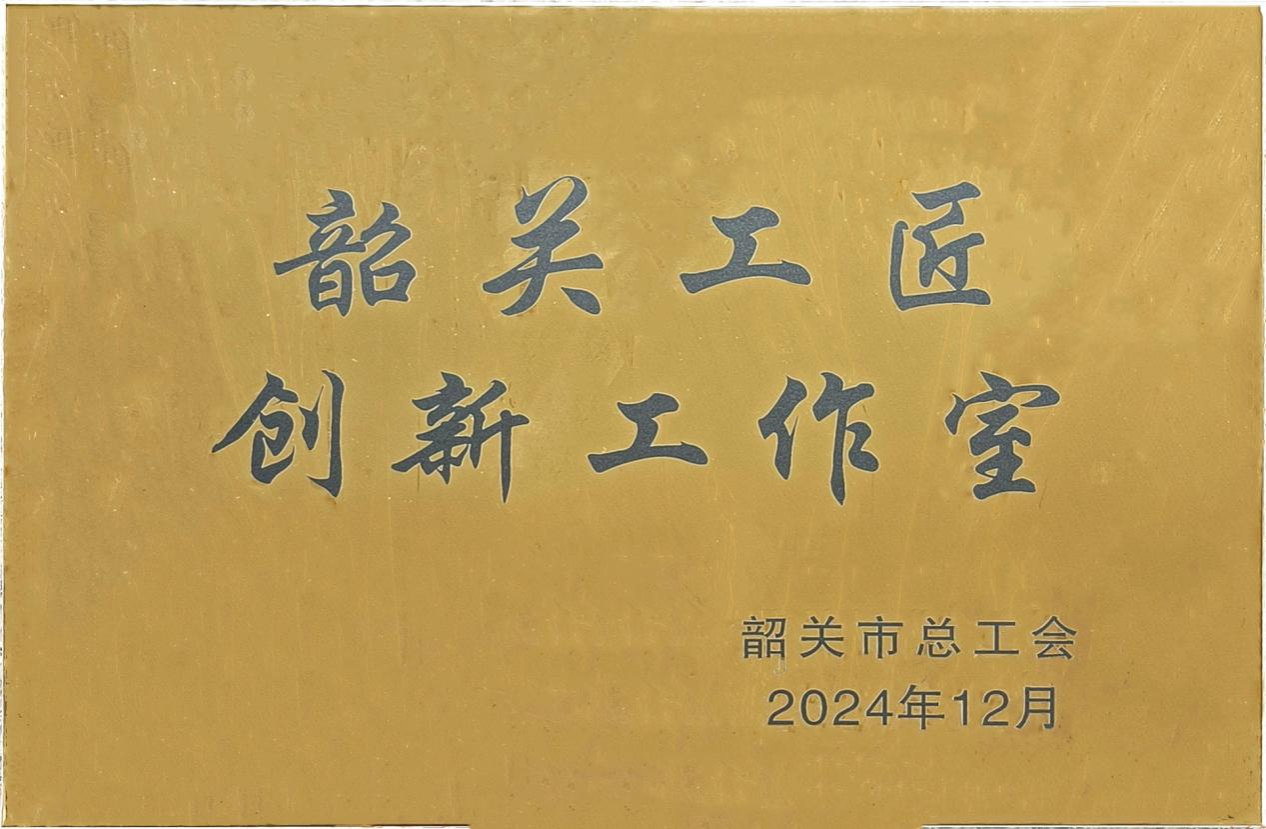 韶关工匠
创新工作室
韶关市总工会
2024年12月